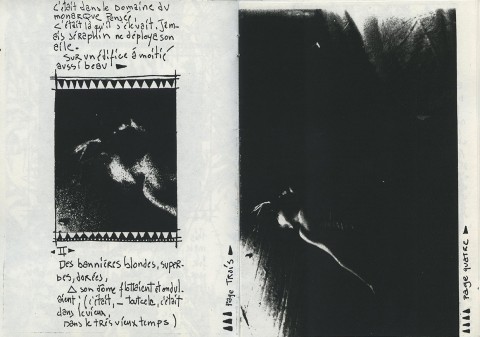 c'était dans le Domaine du
monarque Pensée,
c'était là qu'il s'élevait. Jam-
ais séraphin ne déploya son
aile
sur un édifice à moitié
aussi beau !
II
Des bannières blondes, super-
bes, dorées,
à son dôme flottaient et ondul-
aient ; (c'était, _ tout cela, c'était
dans le vieux,
dans le très vieux temps)
page Trois
page quatre